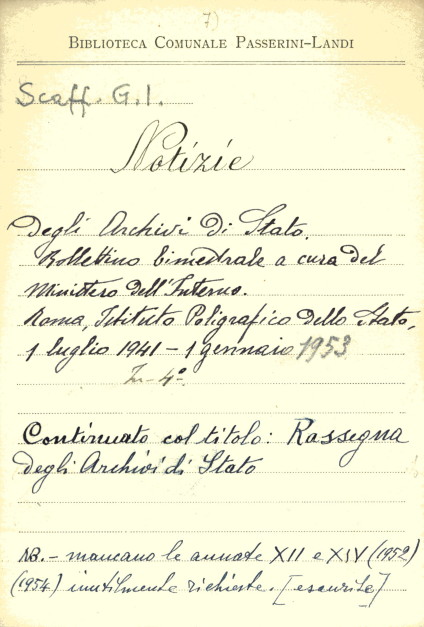 7)
BIBLIOTECA COMUNALE PASSERINI-LANDI
Scaff. G.1.
Notizie
degli Archivi di Stato.
Bollettino bimestrale a cura del
Ministero dell'Interno.
Roma, Istituto Poligrafico dello Stato,
1 luglio 1941 - 1 gennaio 1953
In-4°
Continuato col titolo: Rassegna
degli Archivi di Stato
NB. - mancano le annate XII e XIV (1952)
(1954) inutilmente richieste. [esaurite]